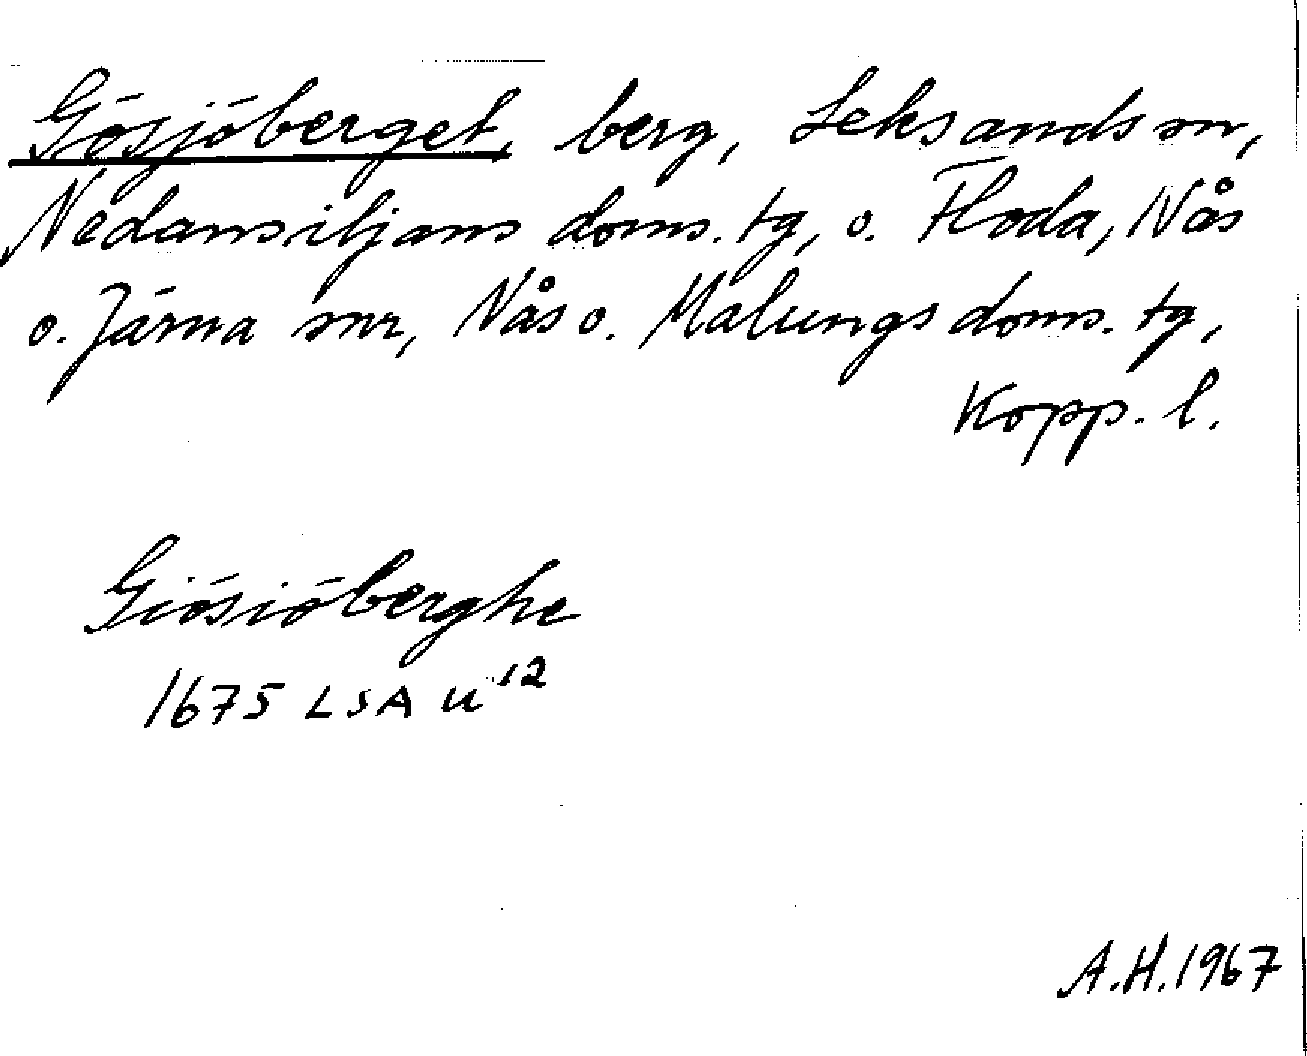 Gösjöberget, berg, Leksands sn,
Nedansiljans doms. tg, o. Floda, Nås
o. Järna snr, Nås o. Malungs doms. tg,
Kopp. l.
Giösiöberghe
1675 LSA U 12
A.H. 1967